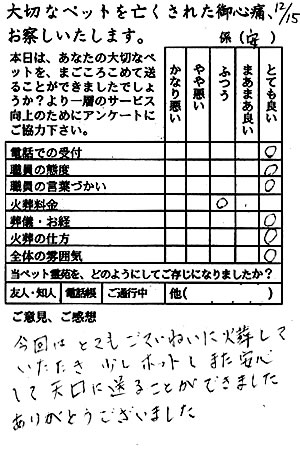 大切なペットを亡くされた御心痛、12/15
お察しいたします。 係(安)
本日は、あなたの大切なペッ
トを、まごころこめて送
ることができましたでし
ょうか？より一層のサービス
向上のためにアンケートに
ご協力下さい。
かなり悪い
やや悪い
ふつう
まあまあ良い
とても良い
電話での受付 ○
職員の態度 ○
職員の言葉づかい ○
火葬料金 ○
葬儀・お経 ○
火葬の仕方 ○
全体の雰囲気 ○
当ペット霊苑を、どのようにしてご存じになりましたか？
友人・知人 電話帳 ご通行中 他( )
ご意見、ご感想
今回は とてもごていねいに火葬して
いただき 少しホットし また安心
して天口に送ることができました
ありがとうございました